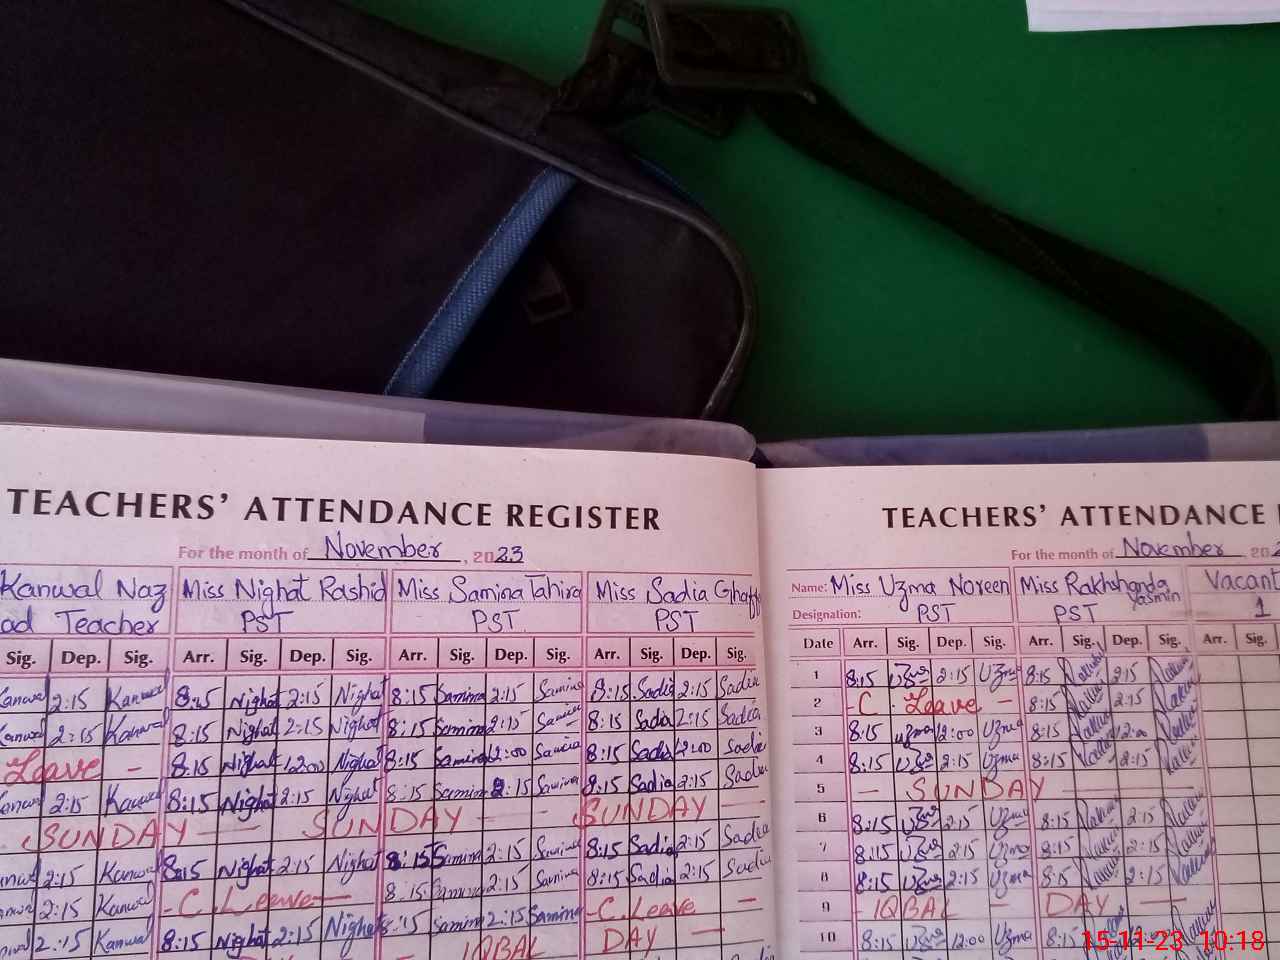 TEACHERS' ATTENDANCE REGISTER
For the month of November, 2023
Kanwal Naz Miss Nighat Rashid Miss Samina Tahira Miss Sadia
ad Teacher PST PST PST
Sig. Dep. Sig. Arr. Sig. Dep. Sig. Arr. Sig. Dep. Sig. Arr. Sig. Dep. Sig.
Kanwal 2:15 Kanwal 8:15 Nighat 2:15 Nighat 8:15 Samina 2:15 Samina 8:15 Sadia 2:15 Sadia
Kanwal 2:15 Kanwal 8:15 Nighat 2:15 Nighat 8:15 Samina 2:15 Samina 8:15 Sadia 2:15 Sadia
Leave - 8:15 Nighat 12:00 Nighat 8:15 Samina 12:00 Samina 8:15 Sadia 12:00 Sadia
2:15 Kanwal 8:15 Nighat 2:15 Nighat 8:15 Samina 2:15 Samina 8:15 Sadia 2:15 Sadia
SUNDAY - SUNDAY - - SUNDAY -
2:15 Kanwal 8:15 Nighat 2:15 Nighat 8:15 Samina 2:15 Samina 8:15 Sadia 2:15 Sadia
2:15 Kanwal - C. Leave - 8:15 Samina 2:15 Samina 8:15 Sadia 2:15 Sadia
2:15 Kanwal 8:15 Nighat 2:15 Nighat 8:15 Samina 2:15 Samina - C. Leave -
IQBAL DAY -
TEACHERS' ATTENDANCE
For the month of November 20
Name: Miss Uzma Noreen Miss Rakhshanda Yasmin Vacant
Designation: PST PST 1
Date Arr. Sig. Dep. Sig. Arr. Sig. Dep. Sig. Arr. Sig.
1 8:15 Uzma 2:15 Uzma 8:15 2:15
2 - C. Leave - 8:15 2:15
3 8:15 Uzma 12:00 Uzma 8:15 12:00
4 8:15 Uzma 2:15 Uzma 8:15 2:15
5 - SUNDAY
6 8:15 Uzma 2:15 Uzma 8:15 2:15
7 8:15 Uzma 2:15 Uzma 8:15 2:15
8 8:15 Uzma 2:15 Uzma 8:15 2:15
9 - IQBAL - DAY -
10 8:15 Uzma 12:00 Uzma 8:15
15-11-23 10:18